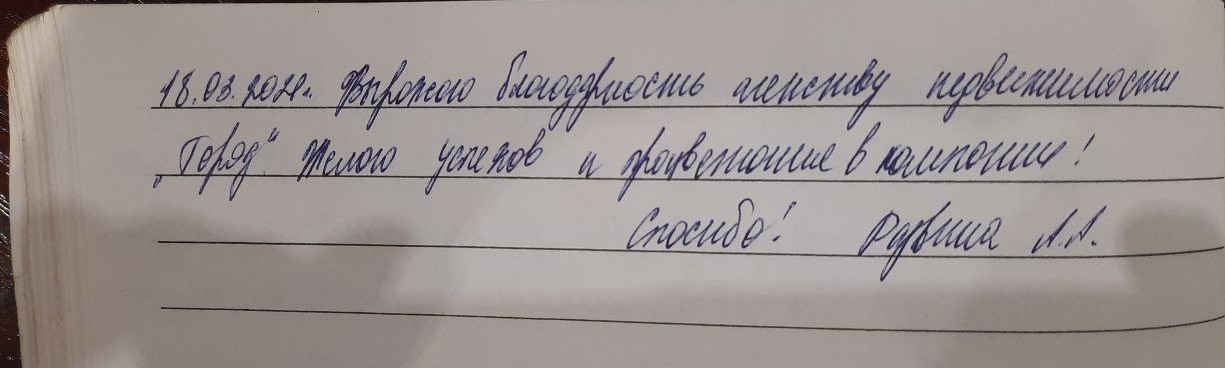 18.03.2021г. Выражаю благодарность агенству недвижимости
„Город". Желаю успехов и процветание в компании!
Спасибо! А.А.